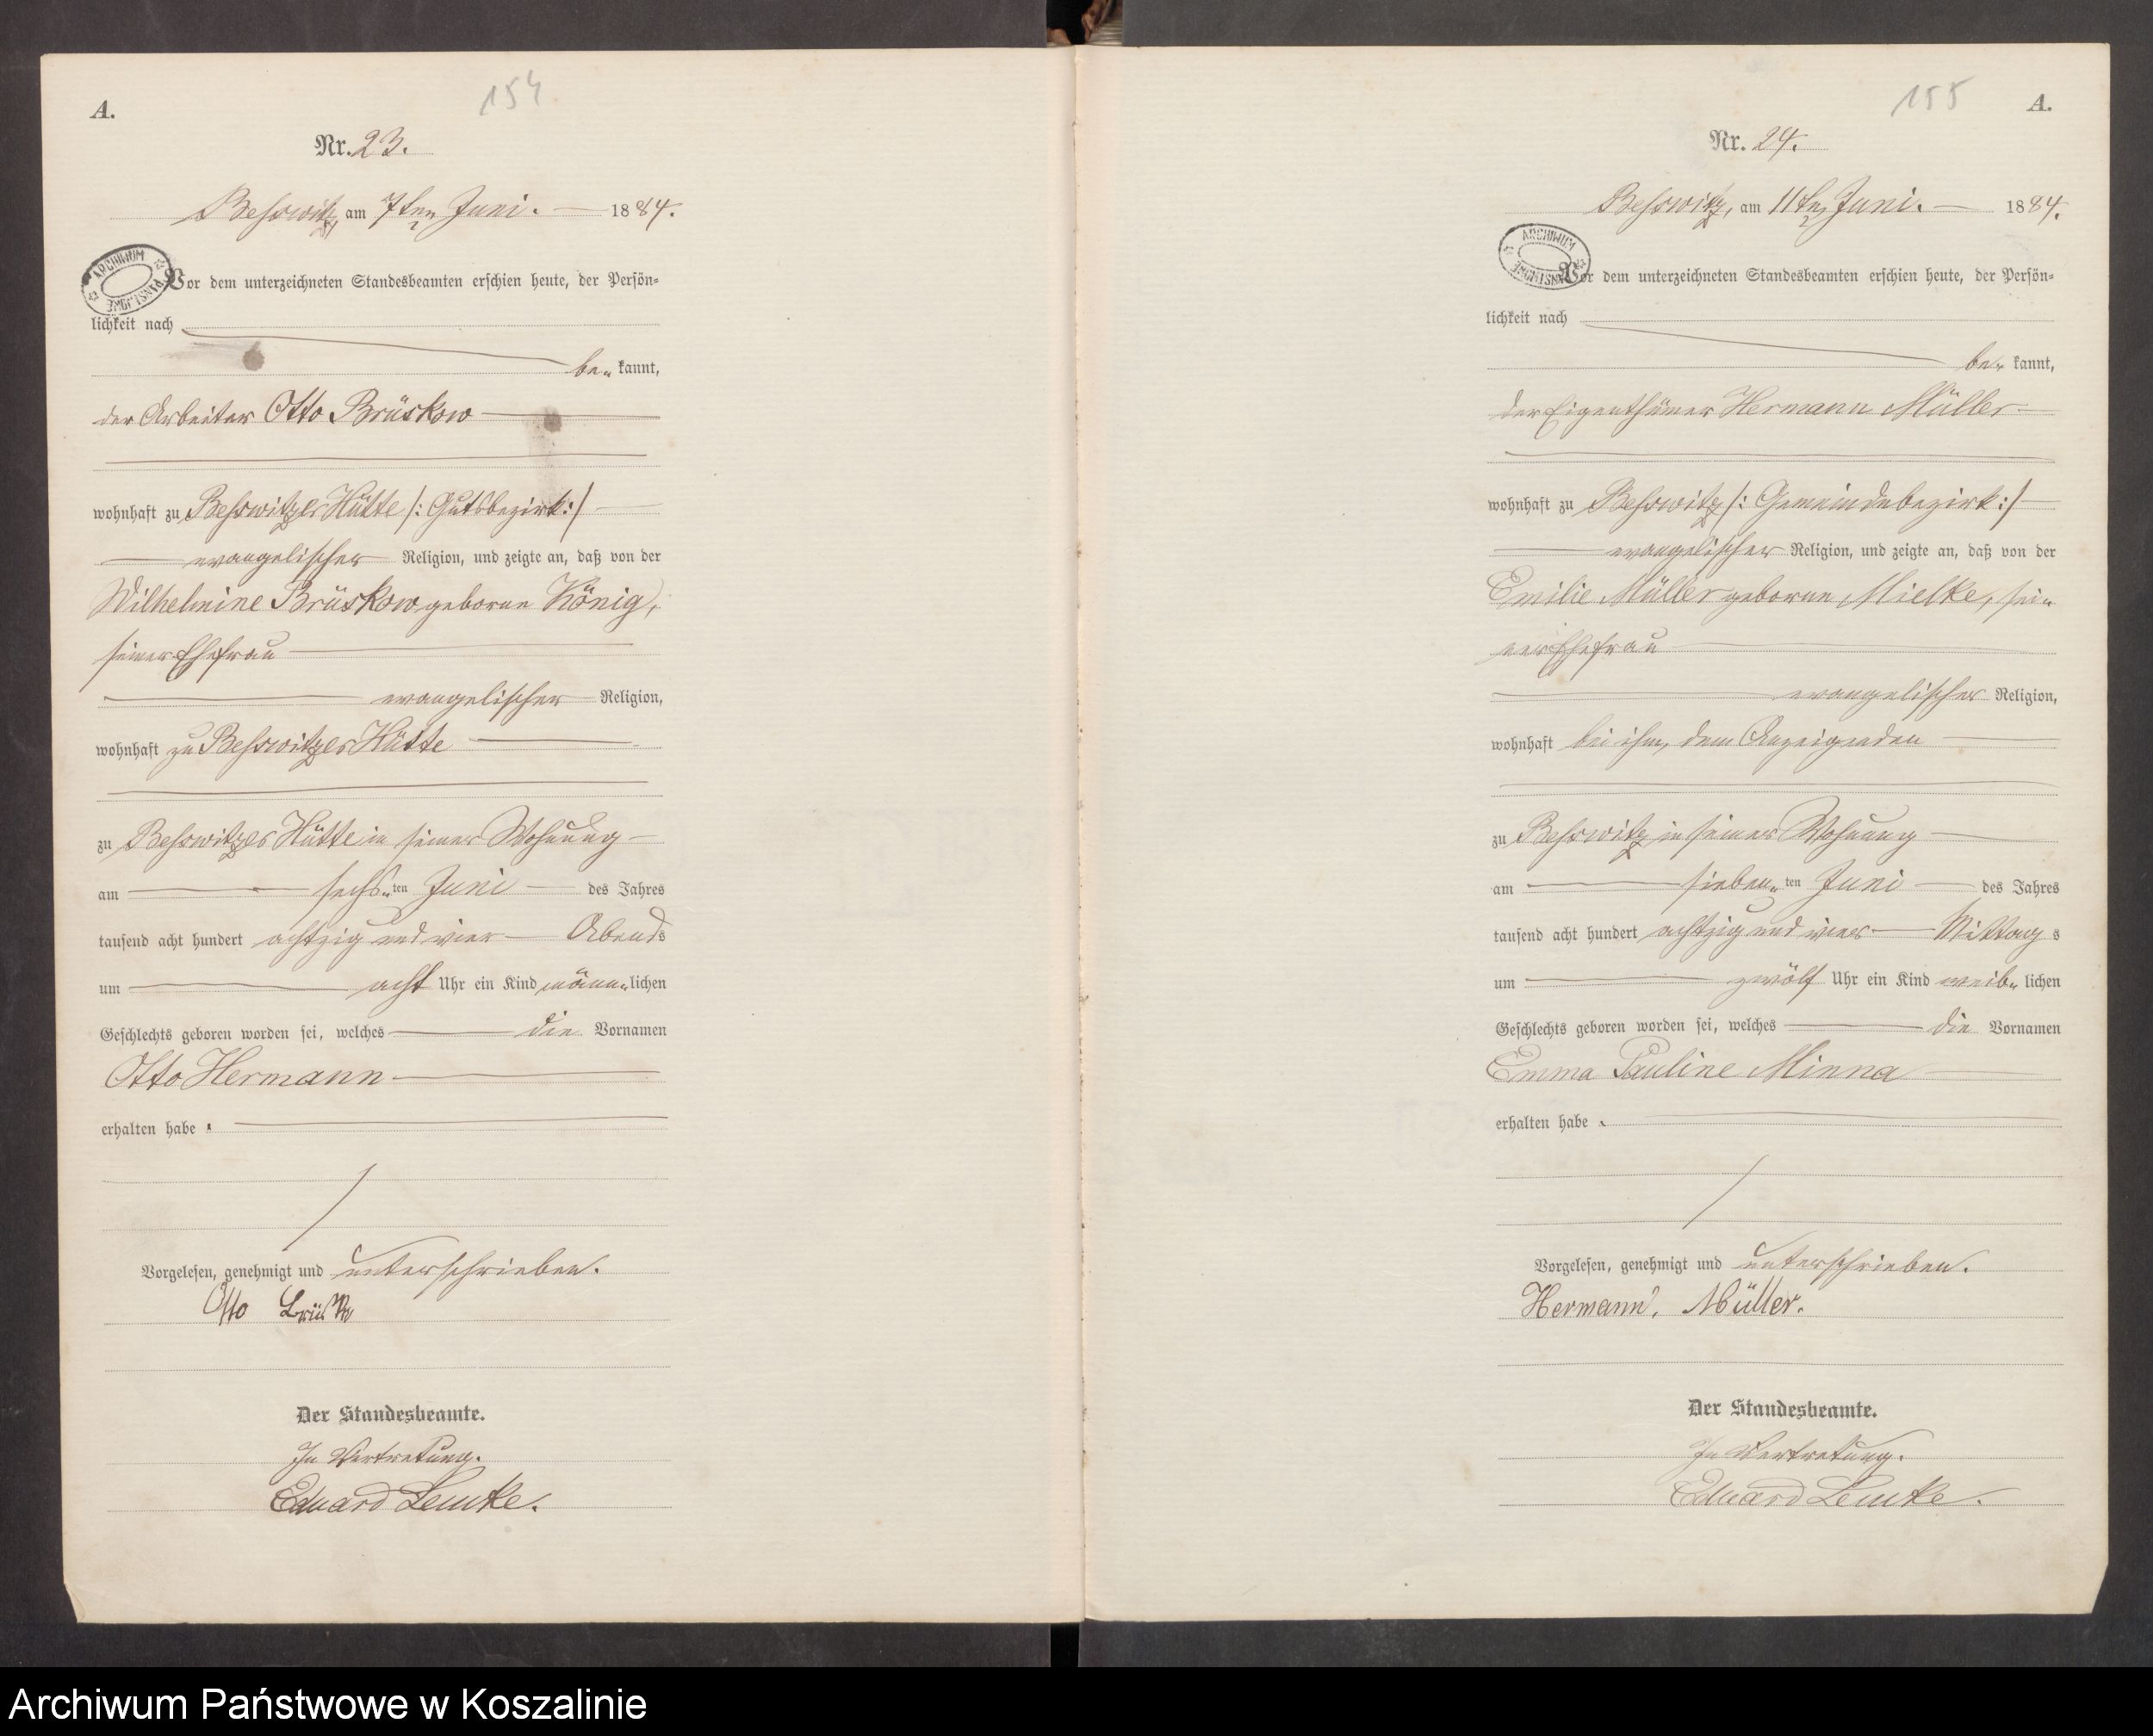 154
A.
Nr. 23.
Beßwitz, am 7ten Juni. 1884.
ARCHIWUM PAŃSTWOWE
Vor dem unterzeichneten Standesbeamten erschien heute, der Persön-
lichkeit nach
be- kannt,
der Arbeiter Otto Brüskow
wohnhaft zu Beßwitzer Hütte /: Gutsbezirk :/
evangelischer Religion, und zeigte an, daß von der
Wilhelmine Brüskow geborne König,
seiner Ehefrau
evangelischer Religion,
wohnhaft zu Beßwitzer Hütte
zu Beßwitzer Hütte in seiner Wohnung
am sechs-ten Juni des Jahres
tausend acht hundert achtzig und vier Abends
um acht Uhr ein Kind männ-lichen
Geschlechts geboren worden sei, welches die Vornamen
Otto Hermann
erhalten habe.
Vorgelesen, genehmigt und unterschrieben.
Otto
Der Standesbeamte.
In Vertretung.
Eduard Lemke.
155
A.
Nr. 24.
Beßwitz, am 11ten Juni. 1884.
ARCHIWUM PAŃSTWOWE
Vor dem unterzeichneten Standesbeamten erschien heute, der Persön-
lichkeit nach
be- kannt,
der Eigenthümer Hermann Müller
wohnhaft zu Beßwitz /: Gemeindebezirk :/
evangelischer Religion, und zeigte an, daß von der
Emilie Müller geborne Mielke, sei-
ner Ehefrau
evangelischer Religion,
wohnhaft bei ihm, dem Anzeigenden
zu Beßwitz in seiner Wohnung
am sieben-ten Juni des Jahres
tausend acht hundert achtzig und vier Mittags
um zwölf Uhr ein Kind weib- lichen
Geschlechts geboren worden sei, welches die Vornamen
Emma Pauline Minna
erhalten habe.
Vorgelesen, genehmigt und unterschrieben.
Hermann. Müller.
Der Standesbeamte.
In Vertretung.
Eduard Lemke.
Archiwum Państwowe w Koszalinie